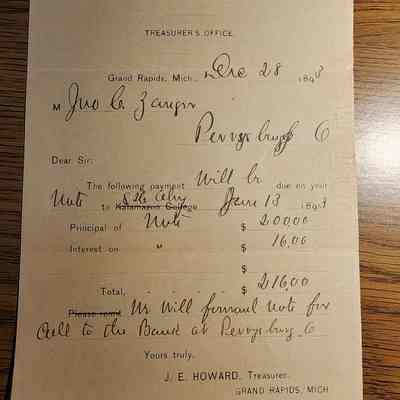 TREASURER'S OFFICE.
Grand Rapids, Mich., Dec 28 1893
M Jno C. Zanger
Perrysburg O
Dear Sir:
The following payment Will be due on your
Note to Kalamazoo College Jany 13 1893
Principal of Note $ 200.00
Interest on " $ 16.00
$
Total, $ 216.00
Please remit We will forward note for
Call to the Bank at Perrysburg O
Yours truly,
J. E. HOWARD, Treasurer.
GRAND RAPIDS, MICH.